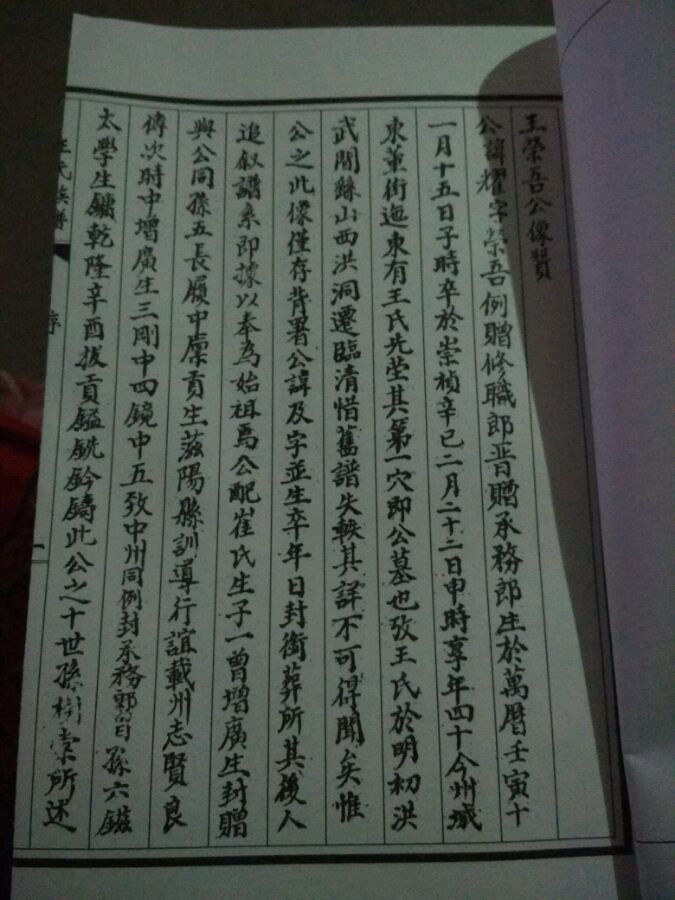 王榮吾公像贊
公諱耀字榮吾例贈修職郎晋贈承務郎生於萬曆壬寅十
一月十五日子時卒於崇禎辛巳二月二十二日申時享年四十今州城
東董街迤東有王氏先塋其第一穴即公墓也攷王氏於明初洪
武間繇山西洪洞遷臨清惜舊譜失軼其詳不可得聞矣惟
公之此像僅存背署公諱及字並生卒年日封銜葬所其後人
追叙譜系即據以奉為始祖焉公配崔氏生子一曾增廣生封贈
與公同孫五長履中廪貢生滋陽縣訓導行誼載州志賢良
傳次時中增廣生三剛中四鏡中五致中州同例封承務郎曾孫六鎡
太學生鏞乾隆辛酉拔貢鎰銑鈐鑄此公之十世孫樹棠所述
王氏族譜
序
一